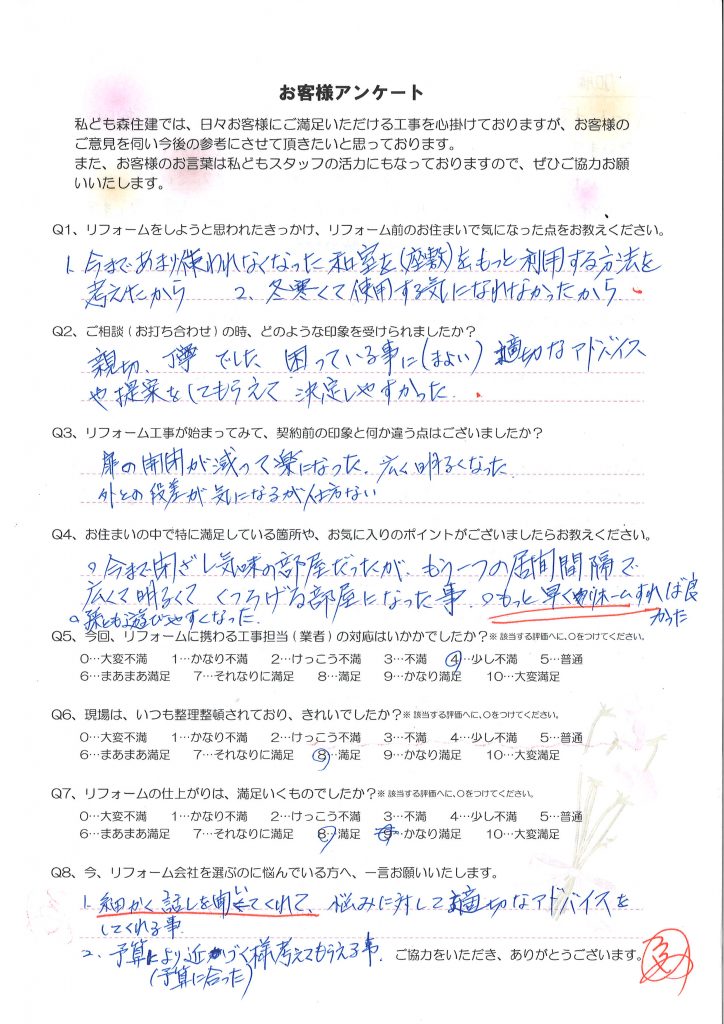 お客様アンケート
私ども森住建では、日々お客様にご満足いただける工事を心掛けておりますが、お客様の
ご意見を伺い今後の参考にさせて頂きたいと思っております。
また、お客様のお言葉は私どもスタッフの活力にもなっておりますので、ぜひご協力お願
いいたします。
Q1、リフォームをしようと思われたきっかけ、リフォーム前のお住まいで気になった点をお教えください。
1. 今まであまり使われなくなった和室を(座敷)をもっと利用する方法を
考えたから 2. 冬寒くて使用する気になれなかったから
Q2、ご相談(お打ち合わせ)の時、どのような印象を受けられましたか?
親切、丁寧でした、困っている事に(まよい)適切なアドバイス
や提案をしてもらえて決定しやすかった
Q3、リフォーム工事が始まってみて、契約前の印象と何か違う点はございましたか?
扉の開閉が減って楽になった、広く明るくなった
外との段差が気になるが仕方ない
Q4、お住まいの中で特に満足している箇所や、お気に入りのポイントがございましたらお教えください。
○今まで閉ざし気味の部屋だったが、もう一つの居間間隔で
広くて明るくてくつろげる部屋になった事、○もっと早くリホームすれば良
かった
○孫とも遊びやすくなった
Q5、今回、リフォームに携わる工事担当(業者)の対応はいかかでしたか?※該当する評価へに、○をつけてください。
0…大変不満 1…かなり不満 2…けっこう不満 3…不満 4…少し不満 5…普通
6…まあまあ満足 7…それなりに満足 8…満足 9…かなり満足 10…大変満足
Q6、現場は、いつも整理整頓されており、きれいでしたか?※該当する評価へに、○をつけてください。
0…大変不満 1…かなり不満 2…けっこう不満 3…不満 4…少し不満 5…普通
6…まあまあ満足 7…それなりに満足 8…満足 9…かなり満足 10…大変満足
Q7、リフォームの仕上がりは、満足いくものでしたか?※該当する評価へに、○をつけてください。
0…大変不満 1…かなり不満 2…けっこう不満 3…不満 4…少し不満 5…普通
6…まあまあ満足 7…それなりに満足 8…満足 9…かなり満足 10…大変満足
Q8、今、リフォーム会社を選ぶのに悩んでいる方へ、一言お願いいたします。
1. 細かく話しを聞いてくれて、悩みに対して適切なアドバイスを
してくれる事
2. 予算により近づく様考えてもらえる事
(予算に合った)
ご協力をいただき、ありがとうございます。